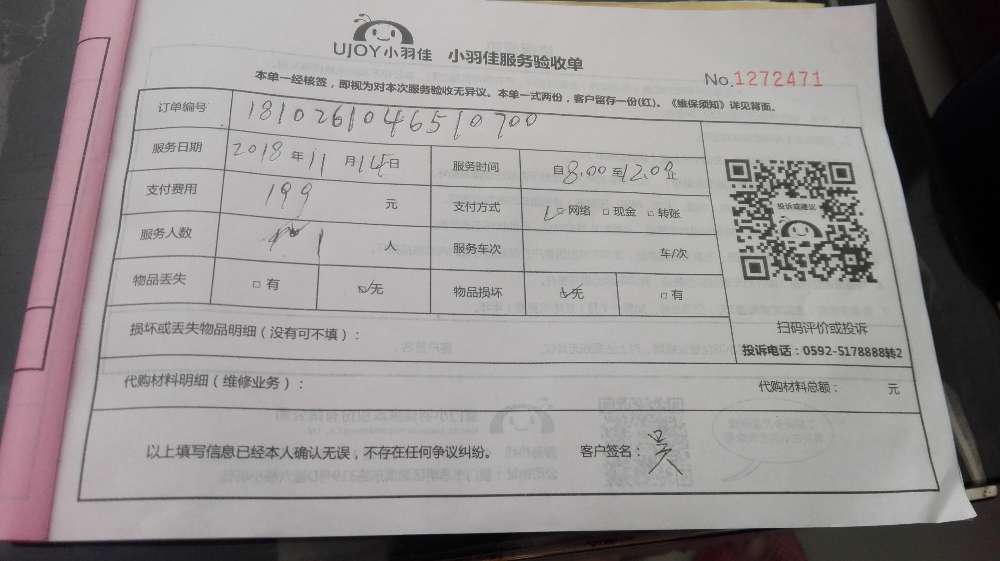 UJOY小羽佳 小羽佳服务验收单
No.1272471
本单一经核签，即视为对本次服务验收无异议。本单一式两份，客户留存一份(红)。《维保须知》详见背面。
订单编号 181026104651 0700
服务日期 2018年11月14日 服务时间 自8.00至12.00止
支付费用 199 元 支付方式 □网络 □现金 □转账
服务人数 1 人 服务车次 车/次
物品丢失 □有 □无 物品损坏 □无 □有
投诉或建议
扫码评价或投诉
投诉电话：0592-5178888转2
损坏或丢失物品明细（没有可不填）：
代购材料明细（维修业务）： 代购材料总额： 元
以上填写信息已经本人确认无误，不存在任何争议纠纷。 客户签名：吴